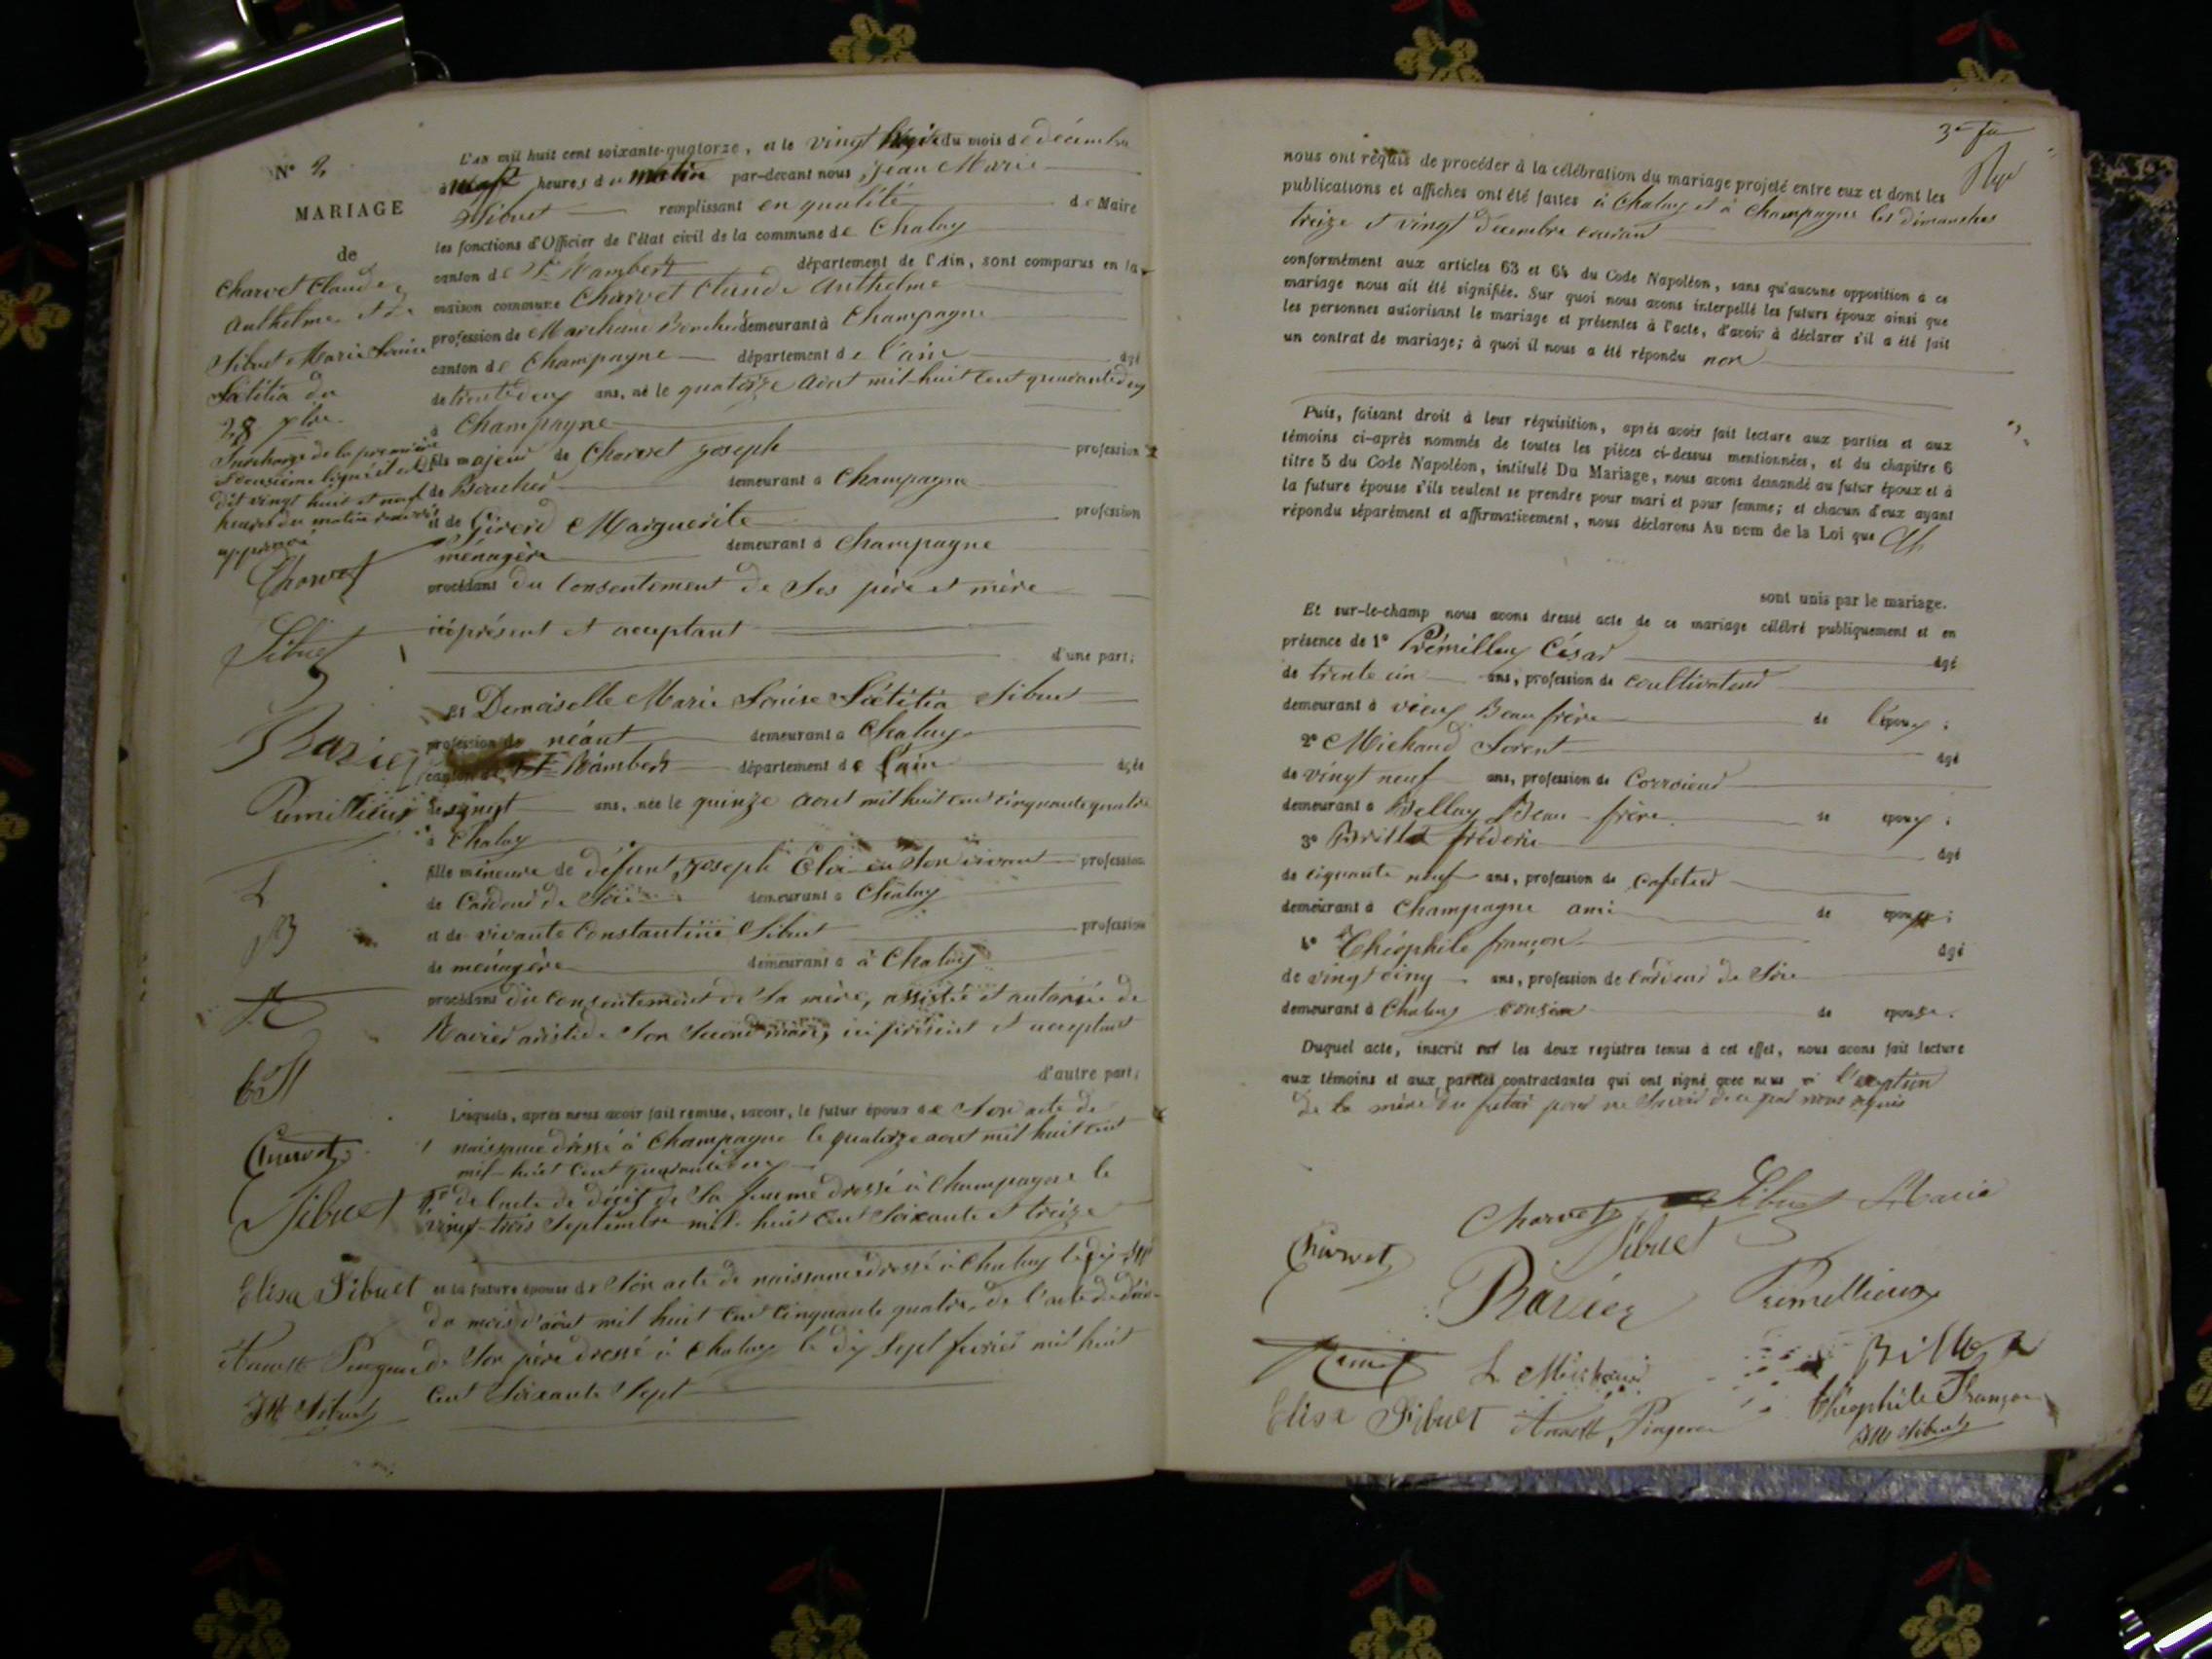 N° 2
MARIAGE
de
Charvet Claude
Anthelme et de
Sibuet Marie Louise
Lætitia du
28 xbre
Surcharge de la première
deuxième ligne et
dit vingt huit et neuf
heures du matin
approuvé
Charvet
Sibuet
Ravier
Premillieux
L
B
Charvet
Sibuet
Elisa Sibuet
JM Sibuet
L'an mil huit cent soixante-quatorze, et le vingt huit du mois de décembre
à neuf heures du matin par-devant nous Jean Marie
Sibuet remplissant en qualité de Maire
les fonctions d'Officier de l'état civil de la commune de Chaley
canton de St Rambert département de l'Ain, sont comparus en la
maison commune Charvet Claude Anthelme
profession de Marchand Boucher demeurant à Champagne
canton de Champagne département de l'ain âgé
de trente deux ans, né le quatorze Aout mil-huit cent quarante deux
à Champagne
fils majeur de Charvet Joseph profession
de Boucher demeurant à Champagne
et de Girerd Marguerite profession
ménagère demeurant à Champagne
procédant du consentement de ses père et mère
ici présent et acceptant
d'une part;
et Demoiselle Marie Louise Lætitia Sibuet
profession de néant demeurant à Chaley
canton de St Rambert département de l'ain âgée
de vingt ans, née le quinze aout mil huit cent cinquante quatre
à Chaley
fille mineure de défunt Joseph Éloi en son vivant profession
de Cardeur de Soie demeurant à Chaley
et de vivante Constantine Sibuet profession
de ménagère demeurant à à Chaley
procédant du consentement de sa mère, assistée et autorisée de
Ravier aristide son second mari, ici présent et acceptant
d'autre part;
Lesquels, après nous avoir fait remise, savoir, le futur époux de Son acte de
naissance dressé à Champagne le quatorze aout mil huit cent
mil-huit cent quarante deux
2° de l'acte de décès de sa femme dressé à Champagne le
vingt-trois Septembre mil huit cent soixante et treize
et la future épouse de Son acte de naissance dressé à Chaley le dix sept
du mois d'août mil huit cent cinquante quatre, de l'acte de décès
de son père dressé à Chaley le dix sept fevrier mil huit
cent soixante sept
3e
nous ont requis de procéder à la célébration du mariage projeté entre eux et dont les
publications et affiches ont été faites à Chaley et à Champagne les dimanches
treize et vingt décembre courant
conformément aux articles 63 et 64 du Code Napoléon, sans qu'aucune opposition à ce
mariage nous ait été signifiée. Sur quoi nous avons interpellé les futurs époux ainsi que
les personnes autorisant le mariage et présentes à l'acte, d'avoir à déclarer s'il a été fait
un contrat de mariage; à quoi il nous a été répondu non
Puis, faisant droit à leur réquisition, après avoir fait lecture aux parties et aux
témoins ci-après nommés de toutes les pièces ci-dessus mentionnées, et du chapitre 6
titre 5 du Code Napoléon, intitulé Du Mariage, nous avons demandé au futur époux et à
la future épouse s'ils veulent se prendre pour mari et pour femme; et chacun d'eux ayant
répondu séparément et affirmativement, nous déclarons Au nom de la Loi que
sont unis par le mariage.
Et sur-le-champ nous avons dressé acte de ce mariage célébré publiquement et en
présence de 1° Prémilleux César âgé
de trente cin ans, profession de coultivateur
demeurant à vieux Beau frère de l'époux;
2° Michaud Lorent âgé
de vingt neuf ans, profession de Corroieur
demeurant à Belley Beau-frère de époux;
3° Brillat fréderic âgé
de ciquante neuf ans, profession de Cafetier
demeurant à Champagne ami de
4° Théophile françon âgé
de vingt cinq ans, profession de Cardeur de Soie
demeurant à Chaley cousin de épouse.
Duquel acte, inscrit sur les deux registres tenus à cet effet, nous avons fait lecture
aux témoins et aux parties contractantes qui ont signé avec nous à l'exeption
de la mère du futur pour ne savoir de ce par nous requis
Charvet Sibuet Marie
Charvet Sibuet
Ravier Premillieux
L Michaud
Elisa Sibuet Théophile Françon
JM Sibuet